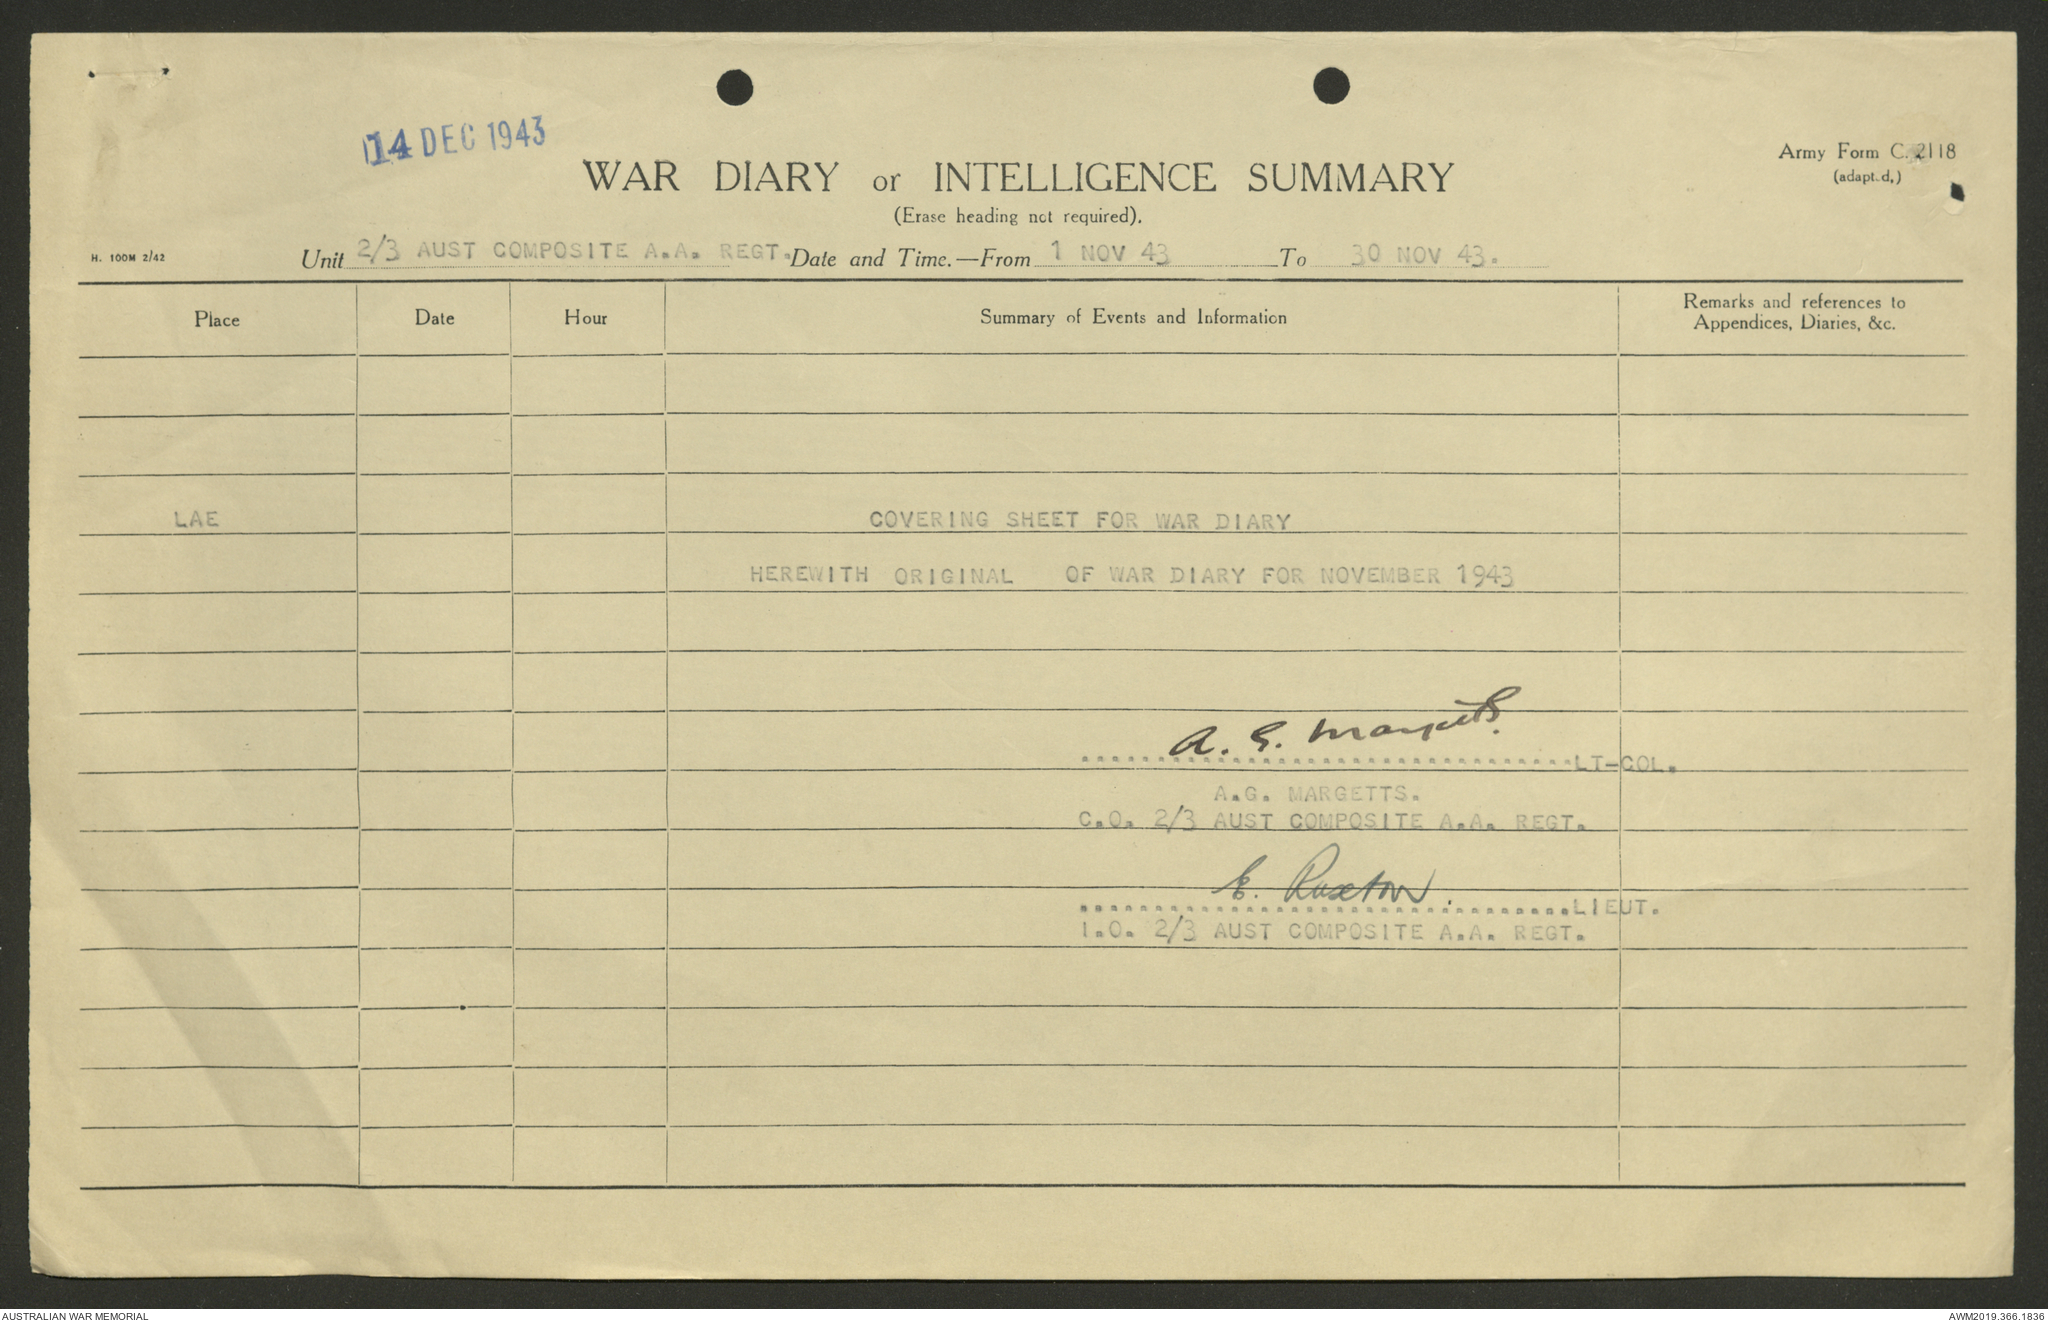 14 DEC 1943
Army Form C. 2118
(adapt.d.)
WAR DIARY or INTELLIGENCE SUMMARY
(Erase heading not required).
H. 100M 2/42
Unit 2/3 AUST COMPOSITE A.A. REGT. Date and Time.—From 1 NOV 43 To 30 NOV 43.
Place Date Hour Summary of Events and Information Remarks and references to
Appendices, Diaries, &c.
LAE COVERING SHEET FOR WAR DIARY
HEREWITH ORIGINAL OF WAR DIARY FOR NOVEMBER 1943
A. G. Margetts. LT-COL.
A.G. MARGETTS.
C.O. 2/3 AUST COMPOSITE A.A. REGT.
E. LIEUT.
I.O. 2/3 AUST COMPOSITE A.A. REGT.
AUSTRALIAN WAR MEMORIAL AWM2019.366.1836